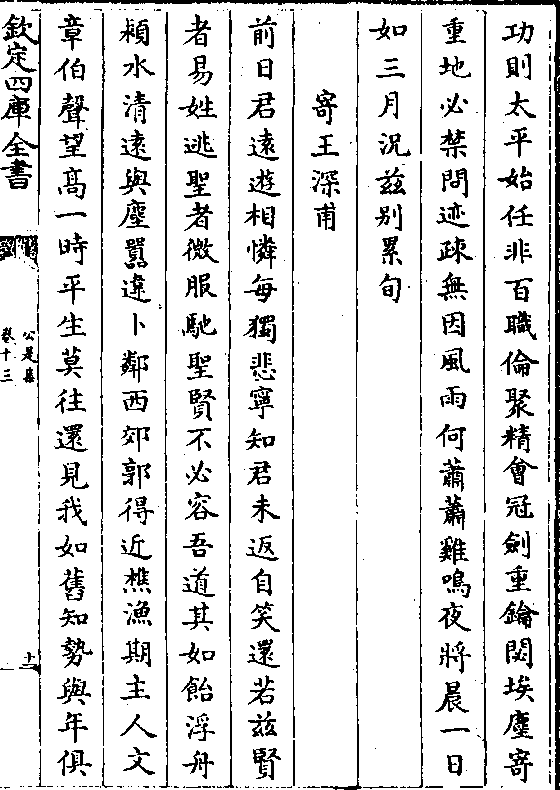 功則太平始任非百職倫聚精會冠劍重鑰閟埃塵寄
重地必禁問迹疎無因風雨何蕭蕭雞鳴夜將晨一日
如三月況兹别累旬
寄王深甫
前日君遠遊相憐每獨悲寧知君未返自笑還若兹賢
者易姓逃聖者微服馳聖賢不必容吾道其如飴浮舟
潁水清遠與塵嚻違卜鄰西郊郭得近樵漁期主人文
章伯聲望髙一時平生莫往還見我如舊知勢與年俱
欽定四庫全書
公是集
卷十三
十一